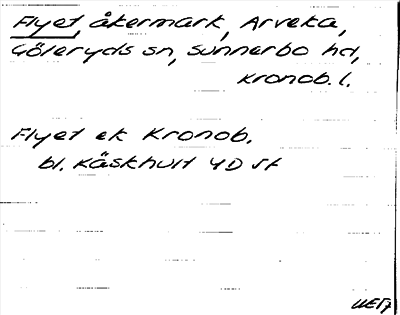 Flyet, åkermark, Arveka,
Göteryds sn, Sunnerbo hd,
Kronob. l.
Flyet ek Kronob.
bl. Käskhult 4D